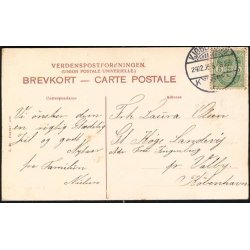 VERDENSPOSTFORENINGEN.
(UNION POSTALE UNIVERSELLE)
BREVKORT — CARTE POSTALE
Correspondance.
Adresse.
Vi ønsker dem
en rigtig Glædelig
Jul og godt
Nytaar
fra Familien
Nielsen
Frk Laura Olsen
St Høge Landevej
pr Valby
København